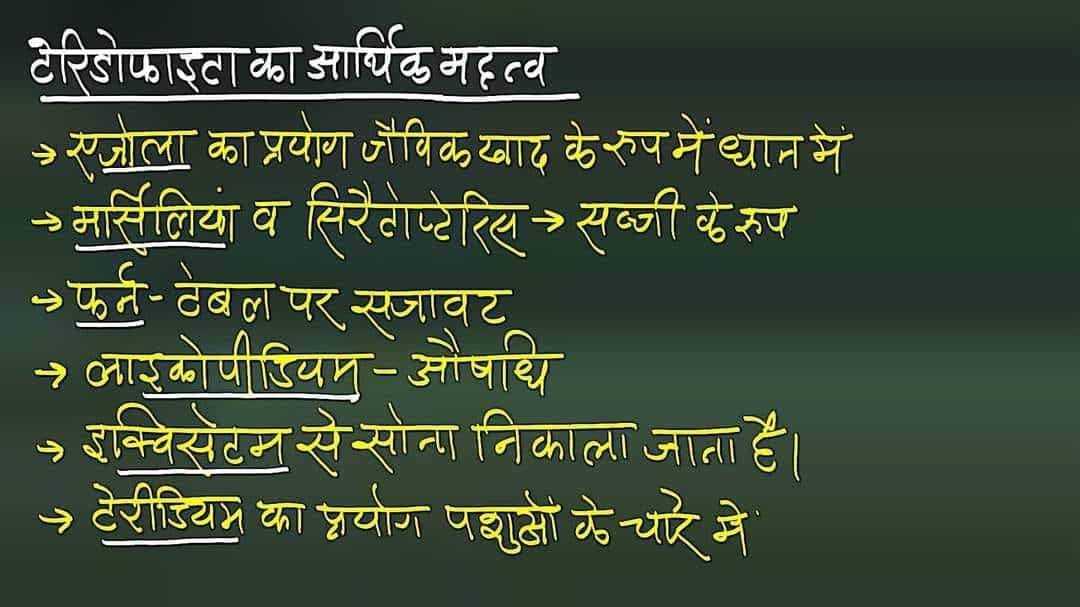 टेरिडोफाइटा का आर्थिक महत्व
→ एजोला का प्रयोग जैविक खाद के रुप में धान में
→ मार्सिलियां व सिरैटोप्टेरिस → सब्जी के रुप
→ फर्न - टेबल पर सजावट
→ लाइकोपीडियम - औषधि
→ इक्विसेटम से सोना निकाला जाता है।
→ टेरीडियम का प्रयोग पशुओं के चारे में